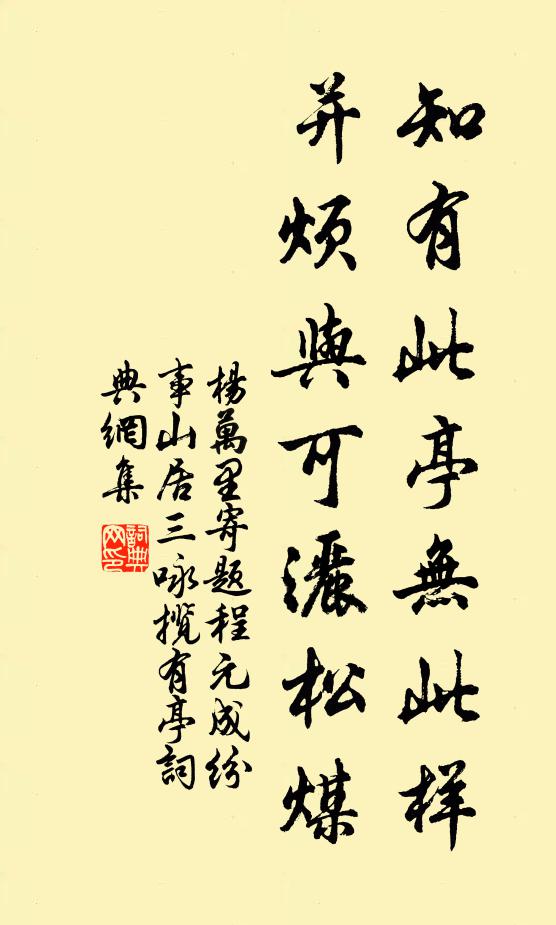 知有此亭無此样
并烦與可灑松煤
楊萬里寄題程元成紛
事山居三咏攬有亭詞
典網集
詞典
网印